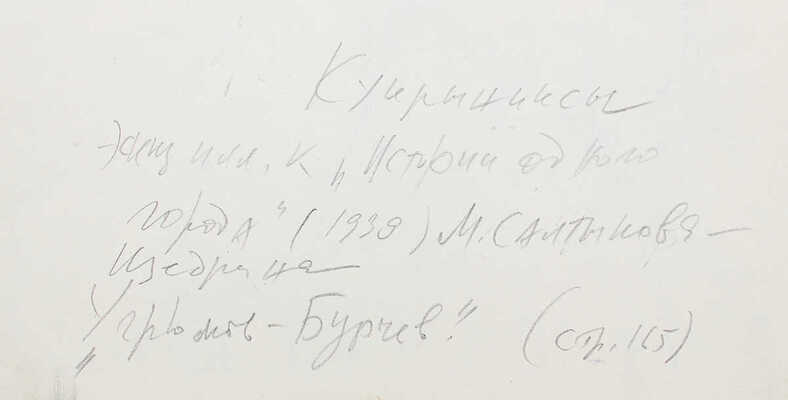 Кукрыниксы
Эскиз илл. к „Истории одного
города" (1939) М. Салтыкова-
Щедрина
„Угрюмов-Бурчев." (стр. 165)